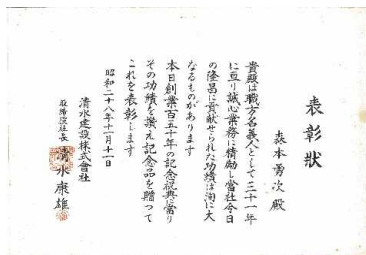 表彰状
森本勇次殿
貴殿は職方名義人として三十一年
に亘り誠心業務に精励し當社今日
の隆昌に貢献せられた功績は洵に大
なるものがあります
本日創業百五十年の記念祝典に當り
その功績を讃え記念品を贈つて
これを表彰します
昭和二十八年十一月十一日
清水建設株式會社
取締役社長 清水康雄